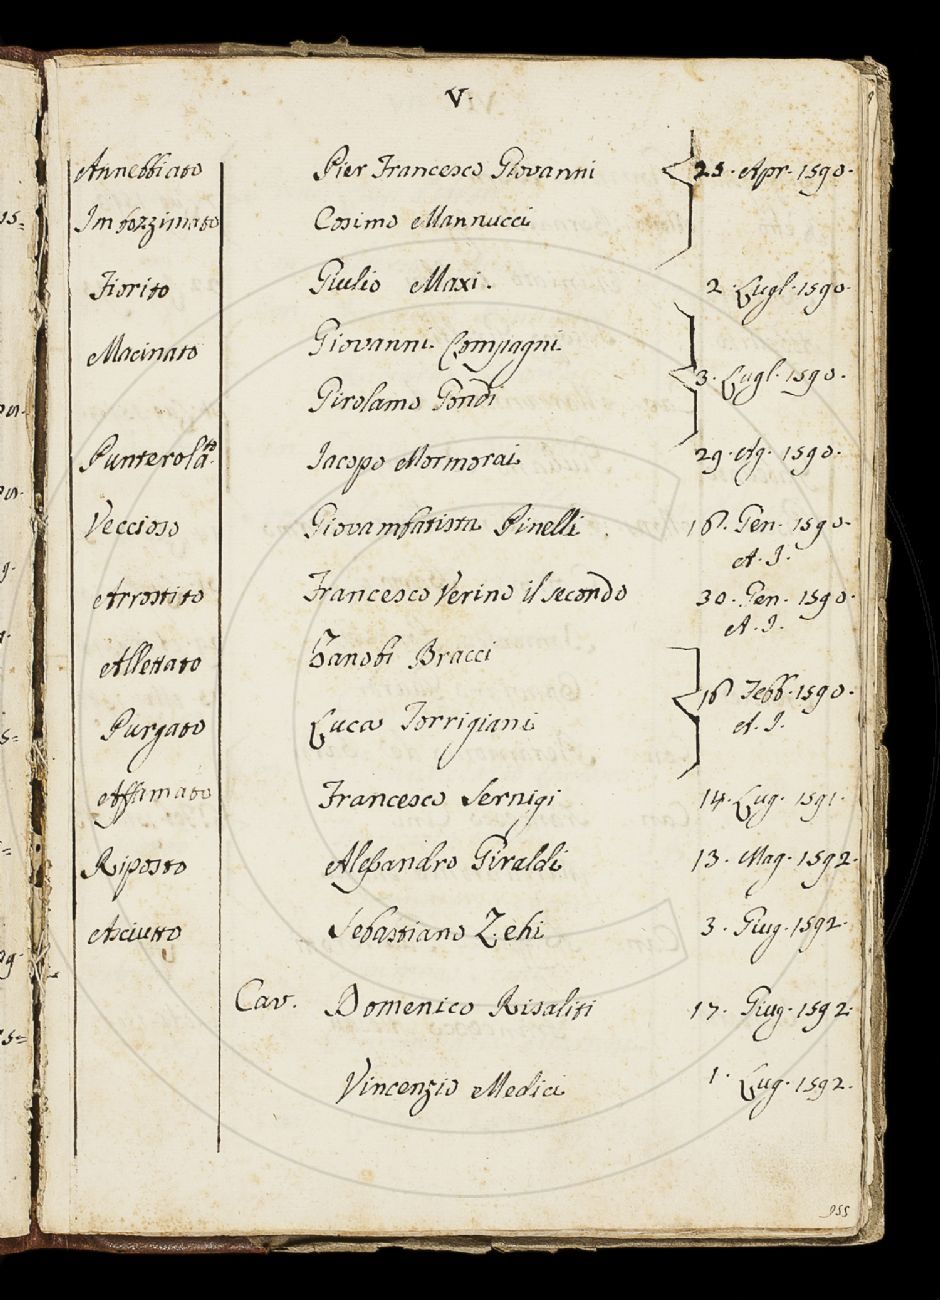 V.
Annebbiato Pier Francesco Giovanni 25. Apr. 1590.
Imbozzimato Cosimo Mannucci
Fiorito Giulio Maxi. 2. Lugl. 1590.
Macinato Giovanni Compagni
3. Lugl. 1590.
Girolamo Gondi
Punterolato. Jacopo Mormorai 29. Ag. 1590.
Veccioso Giovambatista Pinelli. 16. Gen. 1590.
A. I.
Arrostito Francesco Verino il secondo 30. Gen. 1590.
A. I.
Allettato Zanobi Bracci
16 Febb. 1590.
Purgato Luca Torrigiani A. I.
Affamato Francesco Sernigi 14. Lug. 1591.
Riposto Alessandro Giraldi 13. Mag. 1592.
Asciutto Sebastiano Zehi 3. Giug. 1592.
Cav. Domenico Risaliti 17. Giug. 1592.
Vincenzio Medici 1. Lug. 1592.
955